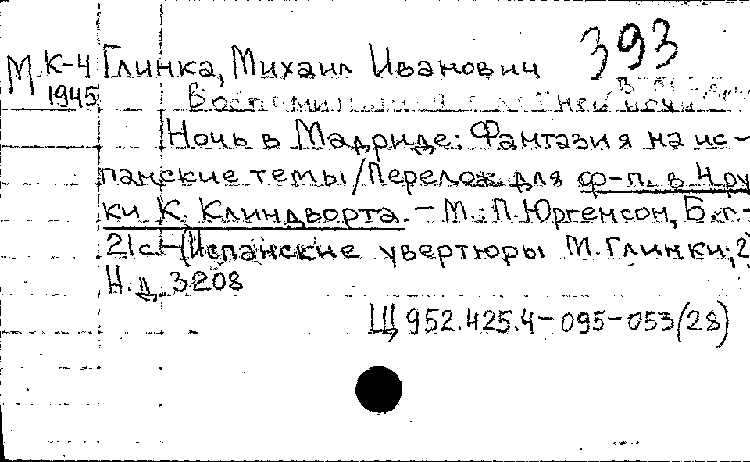 393
М К-4 Глинка, Михаил Иванович
1945
Ночь в Мадриде: Фантазия на ис-
панские темы/Перелож. для ф-п. в 4 ру
ки К. Клиндворта. – М.: П. Юргенсон, Б.г.-
21с. – (Испанские увертюры М. Глинки; 2
Н.д. 3208
Щ 952.425.4-095-053(28)